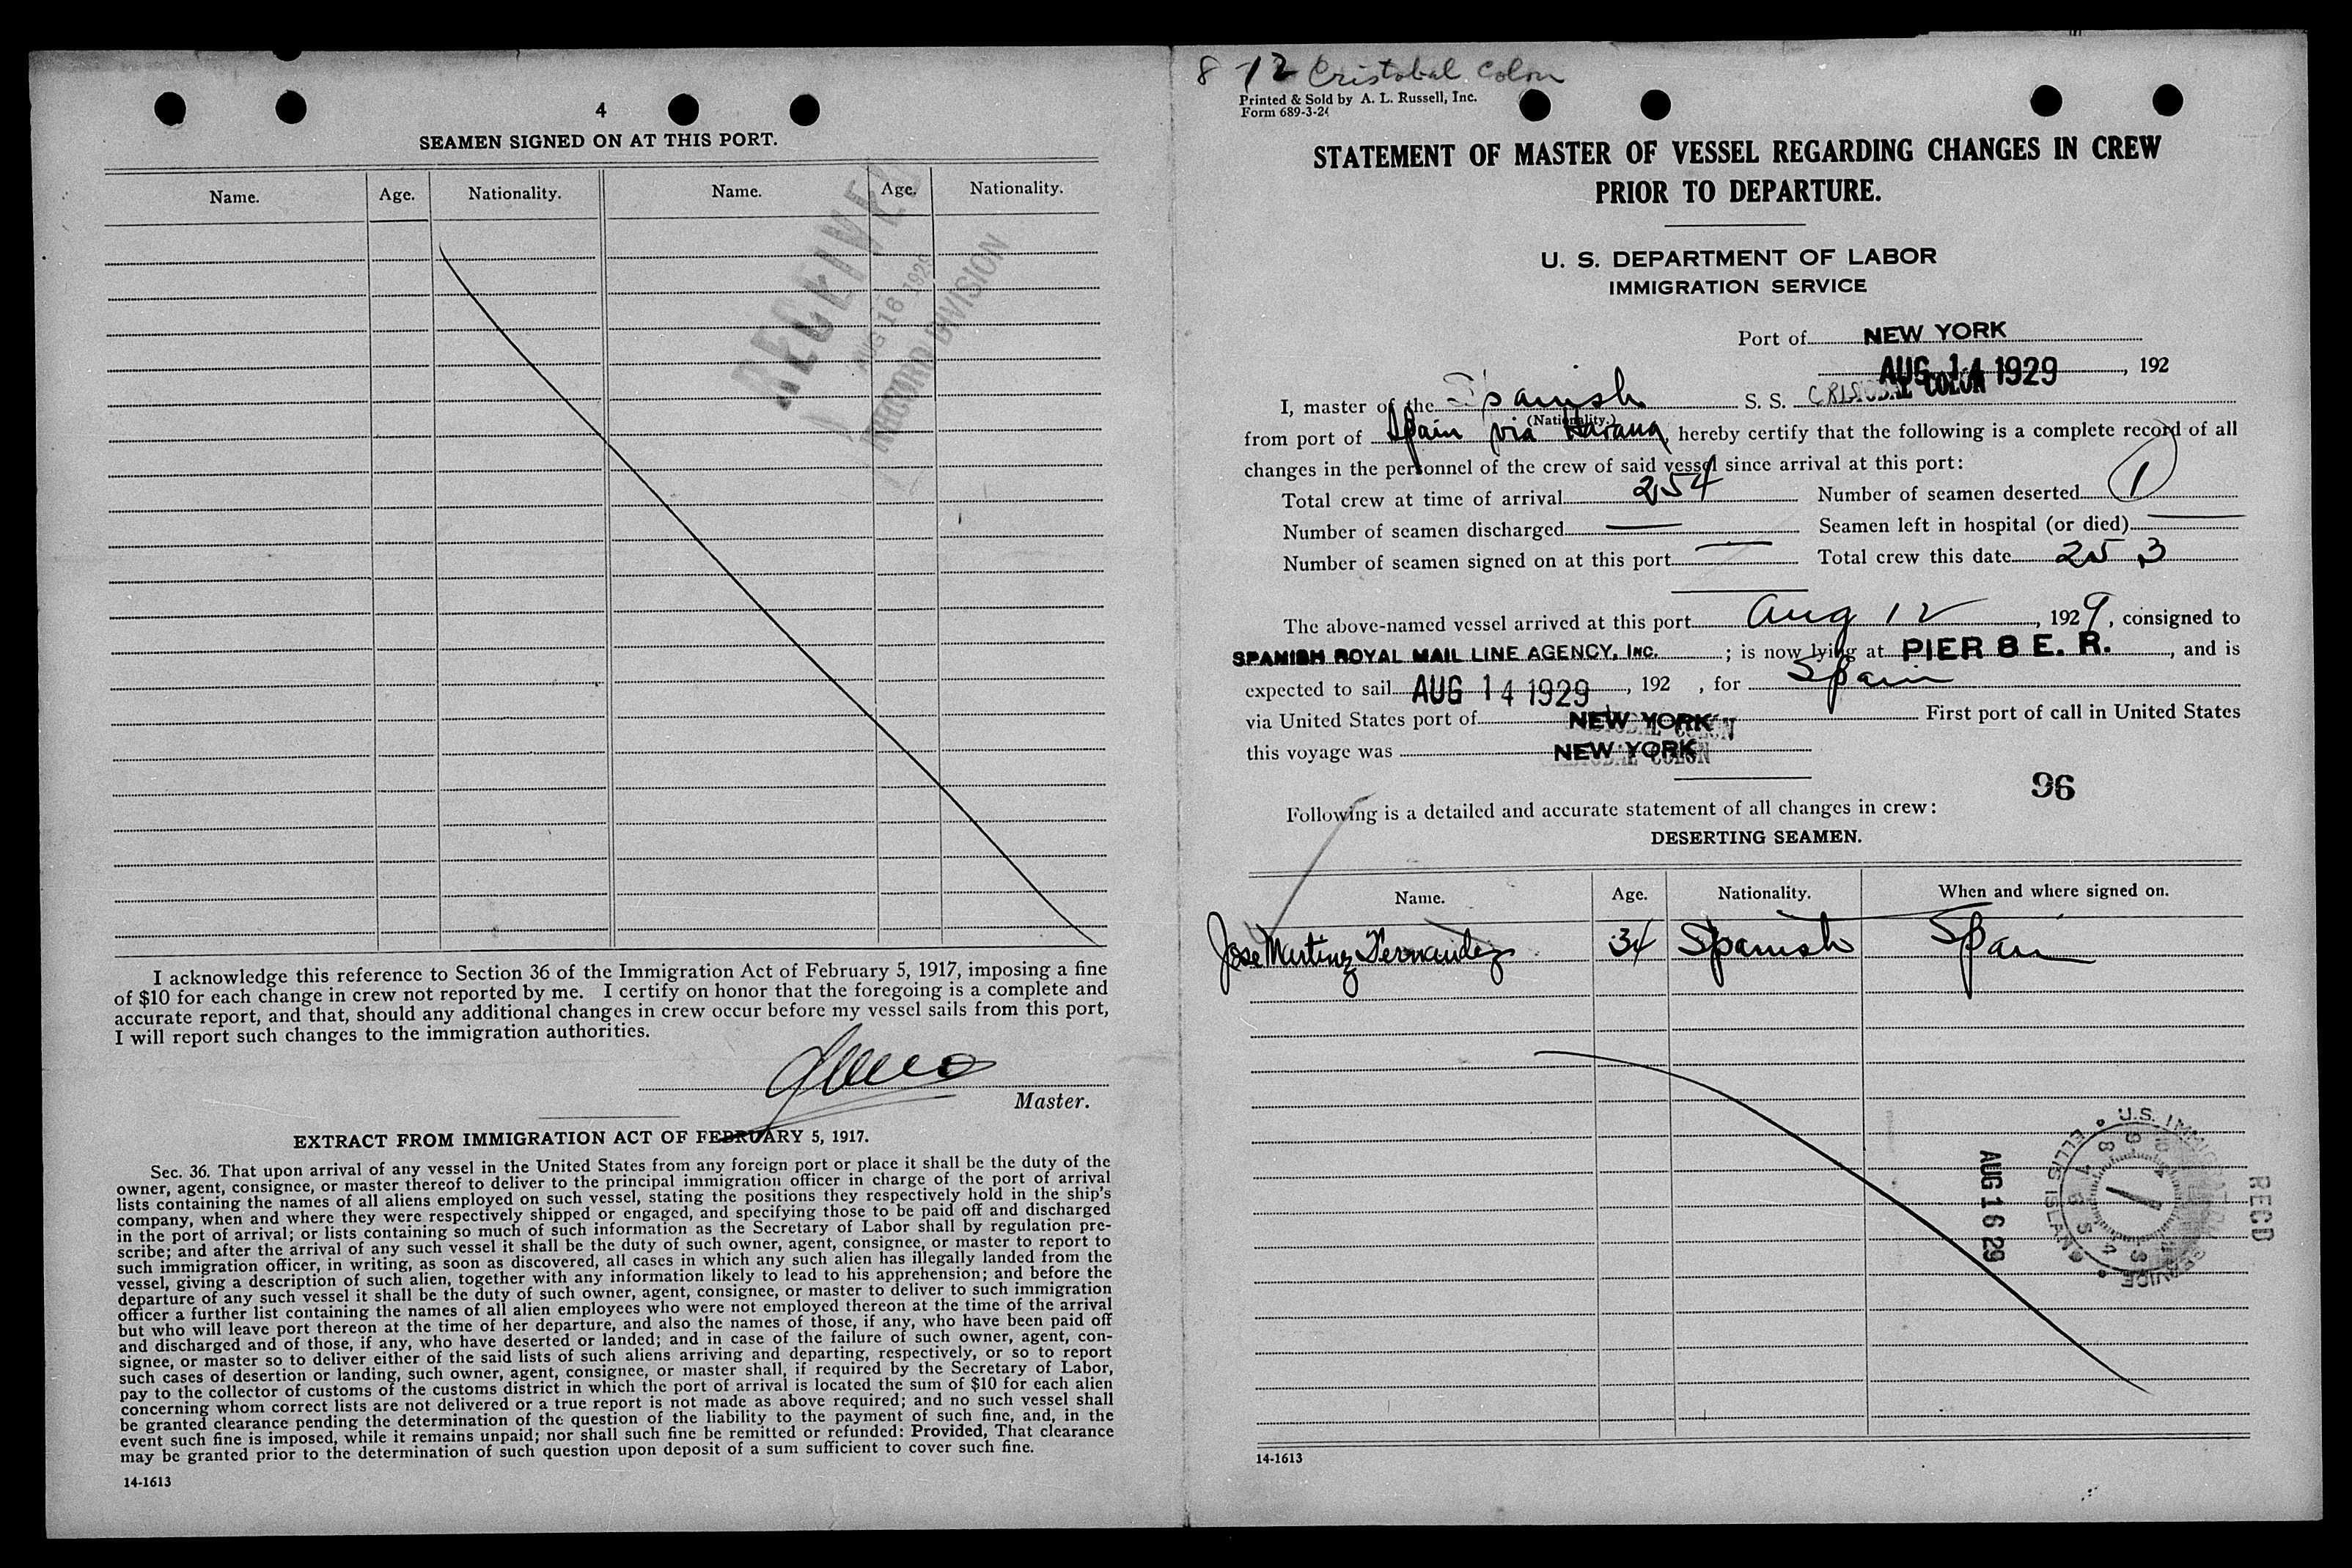 4
SEAMEN SIGNED ON AT THIS PORT.
Name. Age. Nationality. Name. Age. Nationality.
RECEIVED
AUG 16 1929
RECORD DIVISION
I acknowledge this reference to Section 36 of the Immigration Act of February 5, 1917, imposing a fine
of $10 for each change in crew not reported by me. I certify on honor that the foregoing is a complete and
accurate report, and that, should any additional changes in crew occur before my vessel sails from this port,
I will report such changes to the immigration authorities.
Master.
EXTRACT FROM IMMIGRATION ACT OF FEBRUARY 5, 1917.
Sec. 36. That upon arrival of any vessel in the United States from any foreign port or place it shall be the duty of the
owner, agent, consignee, or master thereof to deliver to the principal immigration officer in charge of the port of arrival
lists containing the names of all aliens employed on such vessel, stating the positions they respectively hold in the ship's
company, when and where they were respectively shipped or engaged, and specifying those to be paid off and discharged
in the port of arrival; or lists containing so much of such information as the Secretary of Labor shall by regulation pre-
scribe; and after the arrival of any such vessel it shall be the duty of such owner, agent, consignee, or master to report to
such immigration officer, in writing, as soon as discovered, all cases in which any such alien has illegally landed from the
vessel, giving a description of such alien, together with any information likely to lead to his apprehension; and before the
departure of any such vessel it shall be the duty of such owner, agent, consignee, or master to deliver to such immigration
officer a further list containing the names of all alien employees who were not employed thereon at the time of the arrival
but who will leave port thereon at the time of her departure, and also the names of those, if any, who have been paid off
and discharged and of those, if any, who have deserted or landed; and in case of the failure of such owner, agent, con-
signee, or master so to deliver either of the said lists of such aliens arriving and departing, respectively, or so to report
such cases of desertion or landing, such owner, agent, consignee, or master shall, if required by the Secretary of Labor,
pay to the collector of customs of the customs district in which the port of arrival is located the sum of $10 for each alien
concerning whom correct lists are not delivered or a true report is not made as above required; and no such vessel shall
be granted clearance pending the determination of the question of the liability to the payment of such fine, and, in the
event such fine is imposed, while it remains unpaid; nor shall such fine be remitted or refunded: Provided, That clearance
may be granted prior to the determination of such question upon deposit of a sum sufficient to cover such fine.
14-1613
8-12 Cristobal Colon
Printed & Sold by A. L. Russell, Inc.
Form 689-3-24
STATEMENT OF MASTER OF VESSEL REGARDING CHANGES IN CREW
PRIOR TO DEPARTURE.
U. S. DEPARTMENT OF LABOR
IMMIGRATION SERVICE
Port of NEW YORK
AUG 14 1929, 192
I, master of the Spanish S. S. CRISTOBAL COLON
(Nationality.)
from port of Spain via Havana, hereby certify that the following is a complete record of all
changes in the personnel of the crew of said vessel since arrival at this port:
Total crew at time of arrival 254 Number of seamen deserted 1
Number of seamen discharged — Seamen left in hospital (or died) —
Number of seamen signed on at this port — Total crew this date 253
The above-named vessel arrived at this port Aug 12, 1929, consigned to
SPANISH ROYAL MAIL LINE AGENCY, INC. ; is now lying at PIER 8 E. R., and is
expected to sail AUG 14 1929, 192 , for Spain
via United States port of NEW YORK First port of call in United States
this voyage was NEW YORK
96
Following is a detailed and accurate statement of all changes in crew:
DESERTING SEAMEN.
Name. Age. Nationality. When and where signed on.
Jose Martinez Fernandez 34 Spanish Spain
U.S. IMMIGRATION SERVICE • ELLIS ISLAND •
AUG 16 29
RECD
14-1613